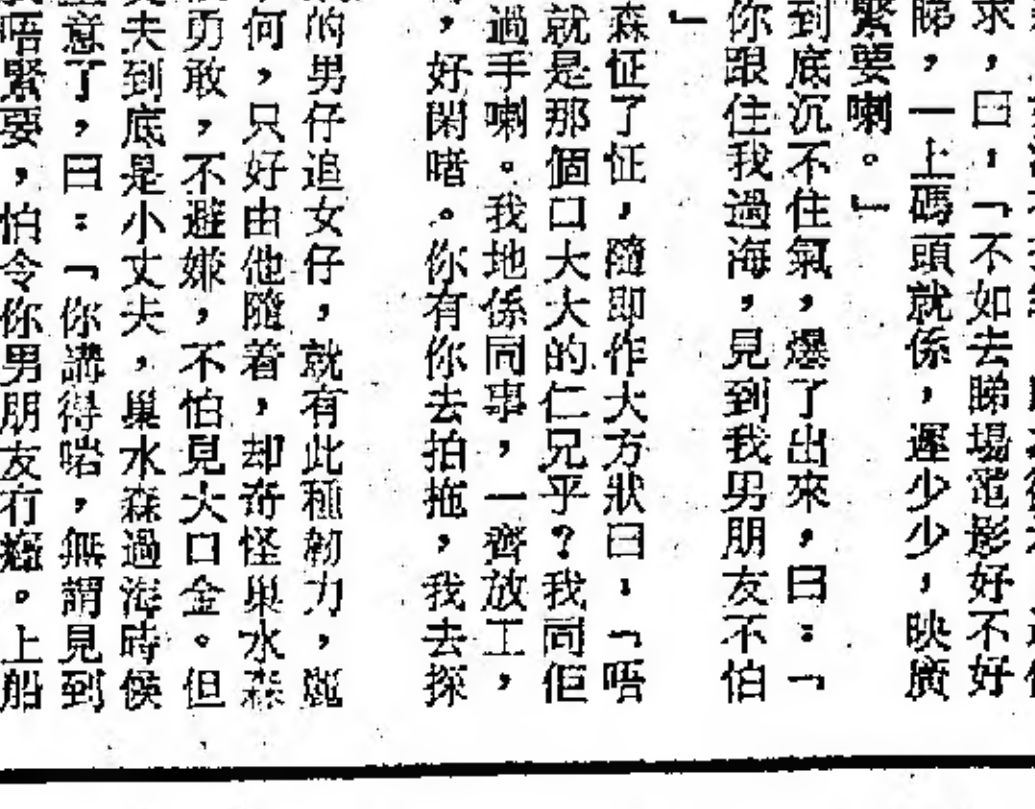 求，曰：「不如去睇場電影好不好
睇，一上碼頭就係，遲少少，映廣
緊要喇。」
到底沉不住氣，爆了出來，曰：「
你跟住我過海，見到我男朋友不怕
」
森怔了怔，隨即作大方狀曰：「唔
就是那個口大大的仁兄乎？我同佢
過手喇。我地係同事，一齊放工，
，好閑啫。你有你去拍拖，我去探
的男仔追女仔，就有此種韌力，
何，只好由他隨着，却奇怪巢水森
勇敢，不避嫌，不怕見大口金。但
夫到底是小丈夫，巢水森過海時候
意了，曰：「你講得啱，無謂見到
唔緊要，怕令你男朋友冇癮。上船